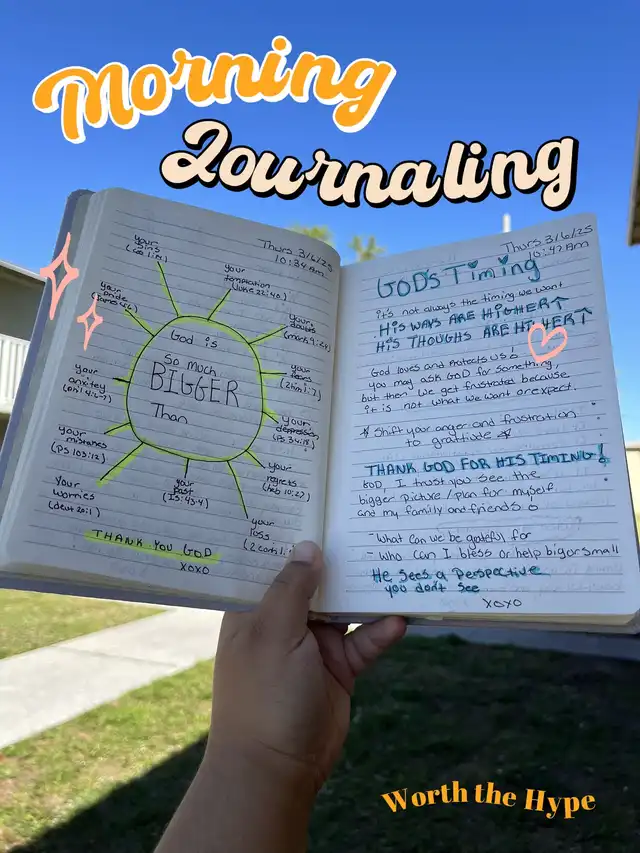 Morning
Journaling
Thurs 3/6/25
10:34 Am
your
sins
your
temptation
(luke 22:40)
your
pride
(James 4:6)
your
doubts
(mark 9:24)
God is
so much
BIGGER
Than
your
fears
(2tim 1:7)
your
anxitey
(phil 4:6-7)
your
depression
(Ps 34:18)
your
mistakes
(PS 103:12)
your
regrets
your
past
(IS: 43:4)
Your
worries
(deut 20:1)
your
loss
THANK YOU GOD
XOXO
Thurs 3/6/25
10:47 Am
GOD'S Timing
it's not always the timing we want
HIS WAYS ARE HIGHER↑
HIS THOUGHTS ARE HIGHER↑
God loves and protects us!
you may ask GOD for something,
but then we get frustrated because
it is not what we want or expect.
Shift your anger and frustration
to gratitude
THANK GOD FOR HIS TIMING!
GOD, I trust you see the
bigger picture / plan for myself
and my family and friends
- What can we be grateful for
- Who can I bless or help big or small
He sees a perspective
you don't see
XOXO
Worth the Hype